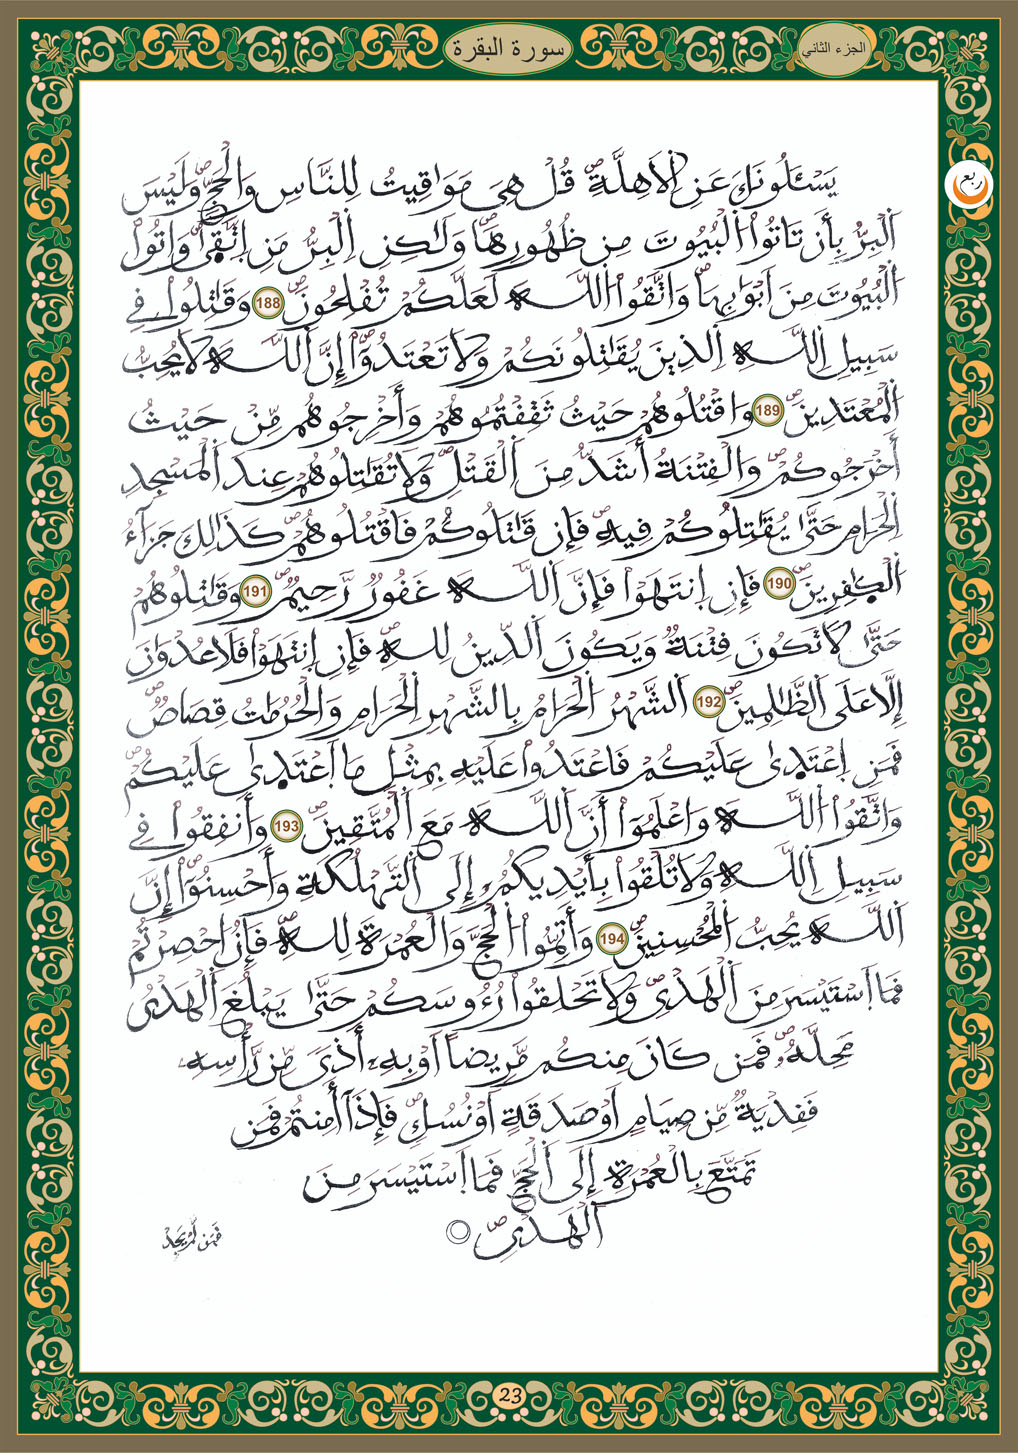 الجزء الثاني
سورة البقرة
ربع
يَسْـَٔلُونَكَ عَنِ اِ۬لَاهِلَّةِۖ قُلْ هِيَ مَوَٰقِيتُ لِلنَّاسِ وَالْحَجِّۖ وَلَيْسَ
اَ۬لْبِرُّ بِأَن تَاتُواْ اُ۬لْبُيُوتَ مِن ظُهُورِهَاۖ وَلَٰكِنِ اِ۬لْبِرُّ مَنِ اِ۪تَّق۪يٰۖ وَاتُواْ
اُ۬لْبُيُوتَ مِنَ اَبْوَٰبِهَاۖ وَاتَّقُواْ اُ۬للَّهَ لَعَلَّكُمْ تُفْلِحُونَۖ 188 وَقَٰتِلُواْ فِے
سَبِيلِ اِ۬للَّهِ اِ۬لذِينَ يُقَٰتِلُونَكُمْ وَلَا تَعْتَدُوٓاْۖ إِنَّ اَ۬للَّهَ لَا يُحِبُّ
اُ۬لْمُعْتَدِينَۖ 189 وَاقْتُلُوهُمْ حَيْثُ ثَقِفْتُمُوهُمْ وَأَخْرِجُوهُم مِّنْ حَيْثُ
أَخْرَجُوكُمْۖ وَالْفِتْنَةُ أَشَدُّ مِنَ اَ۬لْقَتْلِۖ وَلَا تُقَٰتِلُوهُمْ عِندَ اَ۬لْمَسْجِدِ
اِ۬لْحَرَامِ حَتَّىٰ يُقَٰتِلُوكُمْ فِيهِۖ فَإِن قَٰتَلُوكُمْ فَاقْتُلُوهُمْۖ كَذَٰلِكَ جَزَآءُ
اُ۬لْكٰ۪فِرِينَۖ 190 فَإِنِ اِ۪نتَهَوْاْ فَإِنَّ اَ۬للَّهَ غَفُورٌ رَّحِيمٌۖ 191 وَقَٰتِلُوهُمْ
حَتَّىٰ لَا تَكُونَ فِتْنَةٌ وَيَكُونَ اَ۬لدِّينُ لِلهِۖ فَإِنِ اِ۪نتَهَوْاْ فَلَا عُدْوَٰنَ
إِلَّا عَلَى اَ۬لظَّٰلِمِينَۖ 192 اَ۬لشَّهْرُ اُ۬لْحَرَامُ بِالشَّهْرِ اِ۬لْحَرَامِ وَالْحُرُمَٰتُ قِصَاصٌۖ
فَمَنِ اِ۪عْتَد۪يٰ عَلَيْكُمْ فَاعْتَدُواْ عَلَيْهِ بِمِثْلِ مَا اَ۪عْتَد۪يٰ عَلَيْكُمْۖ
وَاتَّقُواْ اُ۬للَّهَ وَاعْلَمُوٓاْ أَنَّ اَ۬للَّهَ مَعَ اَ۬لْمُتَّقِينَۖ 193 وَأَنفِقُواْ فِے
سَبِيلِ اِ۬للَّهِ وَلَا تُلْقُواْ بِأَيْدِيكُمُۥٓ إِلَى اَ۬لتَّهْلُكَةِ وَأَحْسِنُوٓاْۖ إِنَّ
اَ۬للَّهَ يُحِبُّ اُ۬لْمُحْسِنِينَۖ 194 وَأَتِمُّواْ اُ۬لْحَجَّ وَالْعُمْرَةَ لِلهِۖ فَإِنُ ا۟حْصِرْتُمْ
فَمَا اَ۪سْتَيْسَرَ مِنَ اَ۬لْهَدْيِۖ وَلَا تَحْلِقُواْ رُءُوسَكُمْ حَتَّىٰ يَبْلُغَ اَ۬لْهَدْيُ
مَحِلَّهُۥۖ فَمَن كَانَ مِنكُم مَّرِيضاً اَوْ بِهِۦٓ أَذىً مِّن رَّأْسِهِۦ
فَفِدْيَةٌ مِّن صِيَامٍ اَوْ صَدَقَةٍ اَوْ نُسُكٍۖ فَإِذَآ أَمِنتُمْ فَمَن
تَمَتَّعَ بِالْعُمْرَةِ إِلَى اَ۬لْحَجِّ فَمَا اَ۪سْتَيْسَرَ مِنَ
اَ۬لْهَدْيِۖ
فَمَن لَّمْ يَجِدْ
23